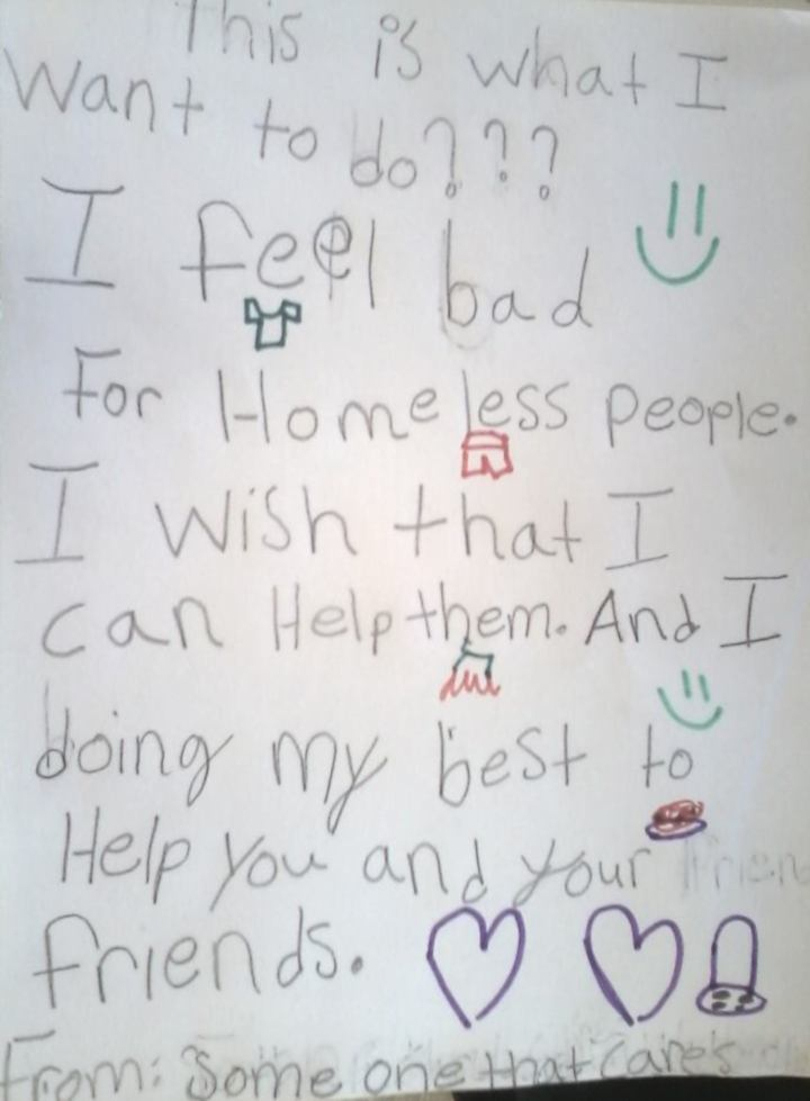 This is what I
Want to do???
I feel bad
For Homeless people.
I wish that I
can Help them. And I
doing my best to
Help you and your frien
friends.
From: Some one that cares